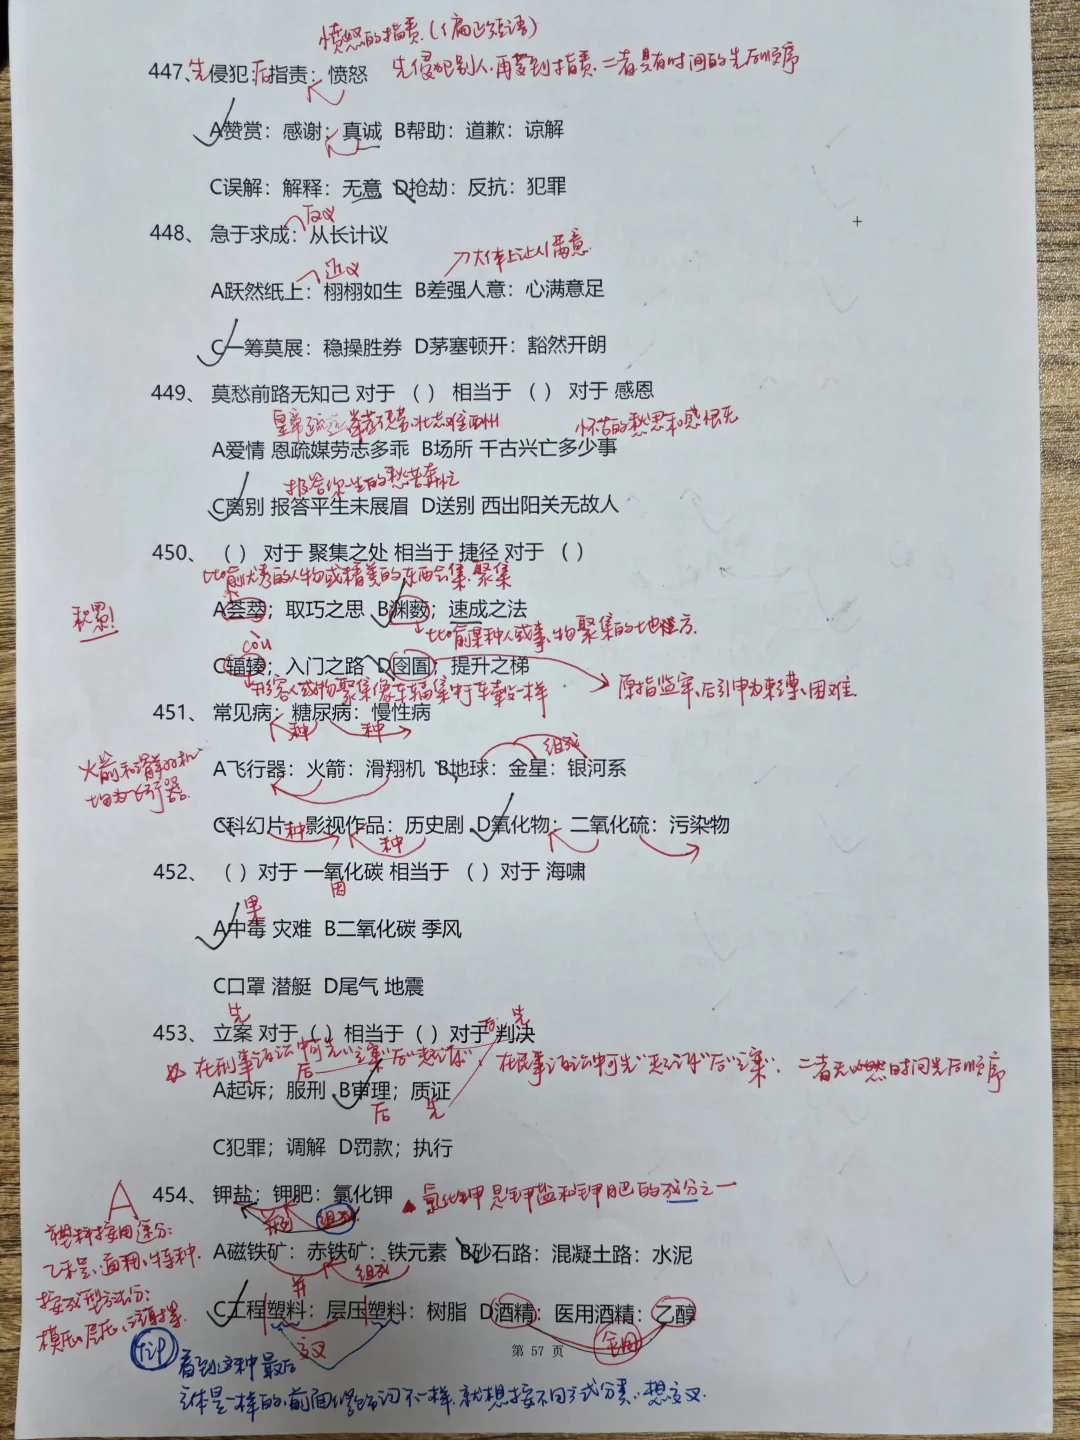 愤怒的指责.(偏正短语)
447、先侵犯:后指责:愤怒 先侵犯别人.再受到指责.二者具有时间的先后顺序
A赞赏：感谢：真诚 B帮助：道歉：谅解
C误解：解释：无意 D抢劫：反抗：犯罪
反义
448、急于求成：从长计议
近义 大体上让人满意.
A跃然纸上：栩栩如生 B差强人意：心满意足
C一筹莫展：稳操胜券 D茅塞顿开：豁然开朗
449、莫愁前路无知己 对于 （ ） 相当于 （ ） 对于 感恩
怀古的愁思和感恨无
A爱情 恩疏媒劳志多乖 B场所 千古兴亡多少事
报答你一生的愁苦奔忙
C离别 报答平生未展眉 D送别 西出阳关无故人
450、（ ） 对于 聚集之处 相当于 捷径 对于 （ ）
比喻优秀的人物或精美的东西会集.聚集
A荟萃；取巧之思 B渊薮；速成之法
积累!
比喻某种人或事、物聚集的地方.
còu
C辐辏；入门之路 D囹圄；提升之梯
形容人或物聚集像车辐集中于车毂一样
原指监牢、后引申为束缚、困难.
451、常见病：糖尿病：慢性病
种 种
组成
A飞行器：火箭：滑翔机 B地球：金星：银河系
火箭和滑翔机
均为飞行器.
C科幻片：影视作品：历史剧 D氧化物：二氧化硫：污染物
种 种
452、（ ）对于 一氧化碳 相当于 （ ）对于 海啸
果 因
A中毒 灾难 B二氧化碳 季风
C口罩 潜艇 D尾气 地震
先 后 先
453、立案 对于（ ）相当于（ ）对于 判决
在刑事诉讼中可先“立案”后“起诉”. 在民事诉讼中可先“起诉”后“立案”. 二者无必然时间先后顺序
后
A起诉；服刑 B审理；质证
后 先
C犯罪；调解 D罚款；执行
A
454、钾盐：钾肥：氯化钾 氯化钾是钾盐和钾肥的成分之一
组成
A磁铁矿：赤铁矿：铁元素 B砂石路：混凝土路：水泥
并 组成
塑料按用途分:
工程、通用、特种.
按成型方法分:
模压、层压、注射等.
C工程塑料：层压塑料：树脂 D酒精：医用酒精：乙醇
交叉 全同
第 57 页
看到这种最后
主体是一样的、前面修饰词不一样.就想按不同方式分类.想交叉.